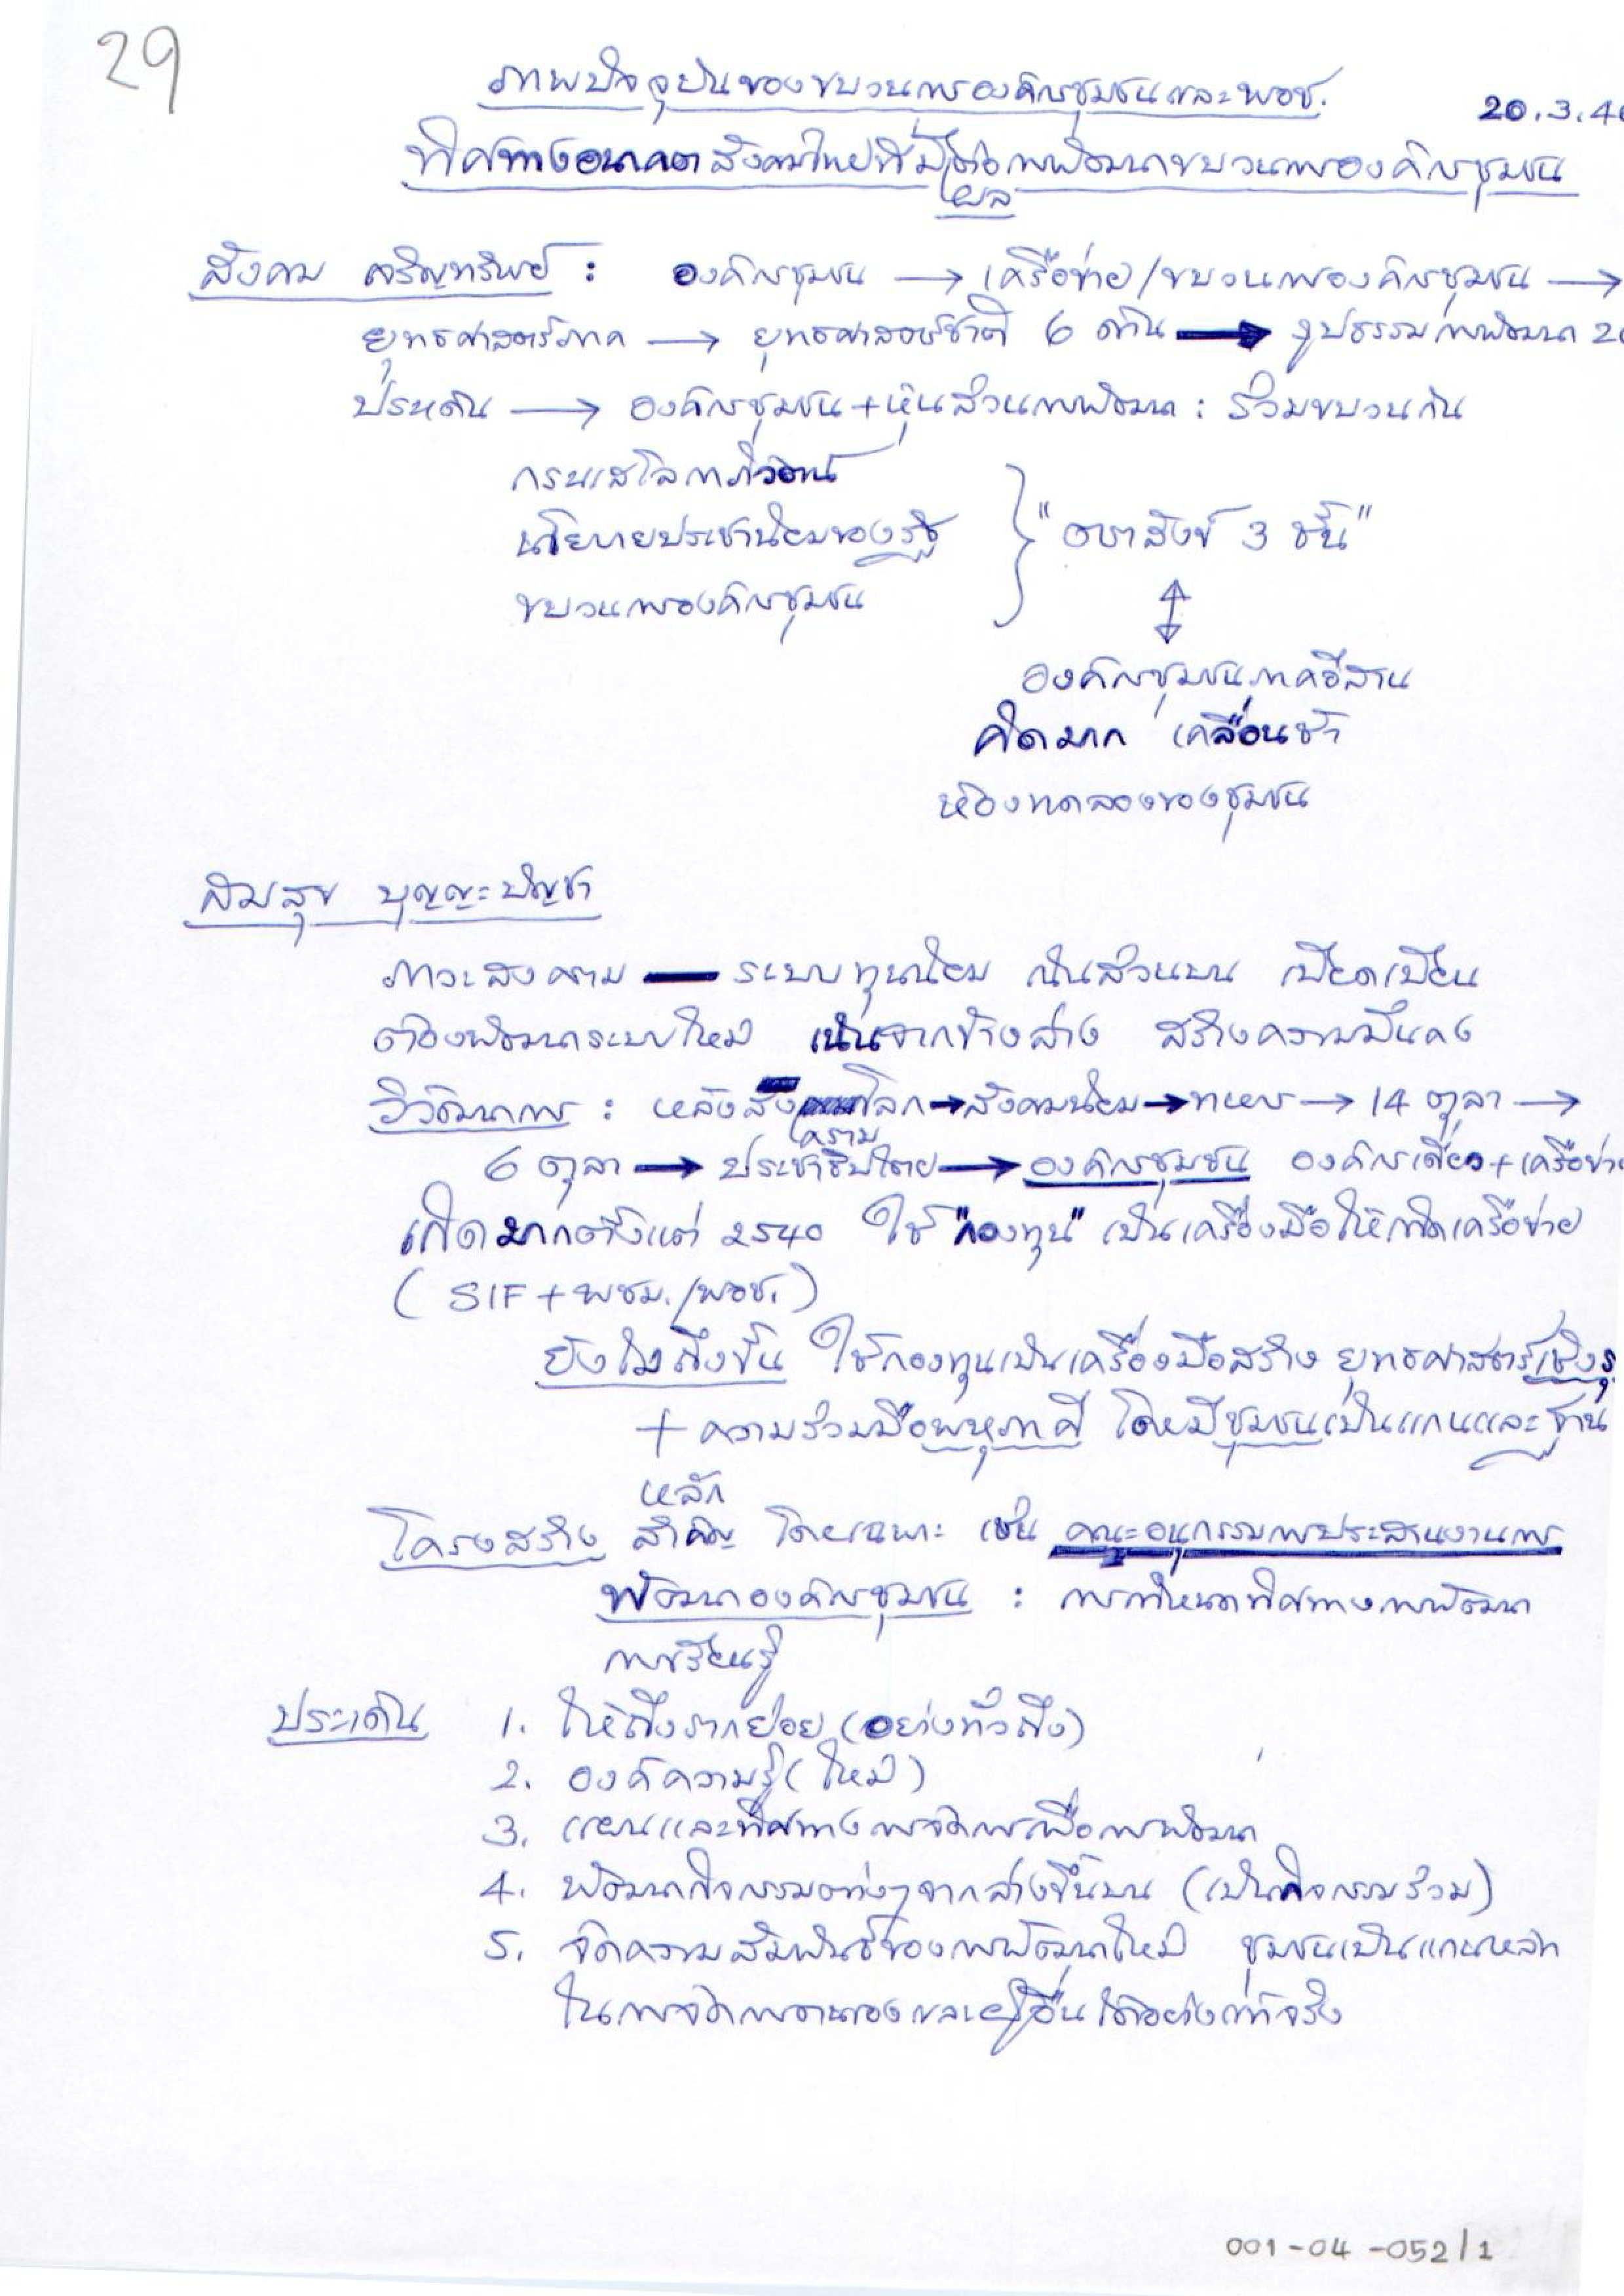 29
ภาพปัจจุบันของขบวนการองค์กรชุมชนและพอช.
20.3.4
ทิศทางอนาคตสังคมไทยที่มีผลต่อการพัฒนาขบวนการองค์กรชุมชน
สังคม เจริญทรัพย์ : องค์กรชุมชน → เครือข่าย/ขบวนการองค์กรชุมชน →
ยุทธศาสตร์ภาค → ยุทธศาสตร์ชาติ 6 ด้าน → รูปธรรมการพัฒนา 2
ประเด็น → องค์กรชุมชน + หุ้นส่วนการพัฒนา : ร่วมขบวนกัน
กระแสโลกาภิวัตน์
นโยบายประชานิยมของรัฐ } "อรหาสังข์ 3 ชั้น"
ขบวนการองค์กรชุมชน
↕
องค์กรชุมชนภาคอีสาน
คิดมาก เคลื่อนช้า
ห้องทดลองของชุมชน
สมสุข บุญญะบัญชา
ภาวะสงคราม — ระบบทุนนิยม เน้นส่วนบน เบียดเบียน
ต้องพัฒนาระบบใหม่ เน้นจากข้างล่าง สร้างความมั่นคง
วิวัฒนาการ : หลังสงครามโลก → สังคมนิยม → ทหาร → 14 ตุลา →
6 ตุลา → ประชาธิปไตย → องค์กรชุมชน องค์กรเดี่ยว + เครือข่าย
เกิดมากตั้งแต่ 2540 ใช้ "กองทุน" เป็นเครื่องมือให้เกิดเครือข่าย
(SIF + พชม./พอช.)
ยังไม่ถึงขั้น ใช้กองทุนเป็นเครื่องมือสร้าง ยุทธศาสตร์เชิงรุ
+ ความร่วมมือพหุภาคี โดยมีชุมชนเป็นแกนและฐาน
หลัก
โครงสร้าง สำคัญ โดยเฉพาะ เช่น คณะอนุกรรมการประสานงานการ
พัฒนาองค์กรชุมชน : การกำหนดทิศทางการพัฒนา
การเรียนรู้
ประเด็น 1. ให้ถึงรากย่อย (อย่างทั่วถึง)
2. องค์ความรู้ (ใหม่)
3. แผนและทิศทางการจัดการเพื่อการพัฒนา
4. พัฒนากิจกรรมต่างๆจากล่างขึ้นบน (เป็นกิจกรรมร่วม)
5. จัดความสัมพันธ์ของการพัฒนาใหม่ ชุมชนเป็นแกนหลัก
ในการจัดการตนเองและผู้อื่นได้อย่างแท้จริง
001-04-052/1